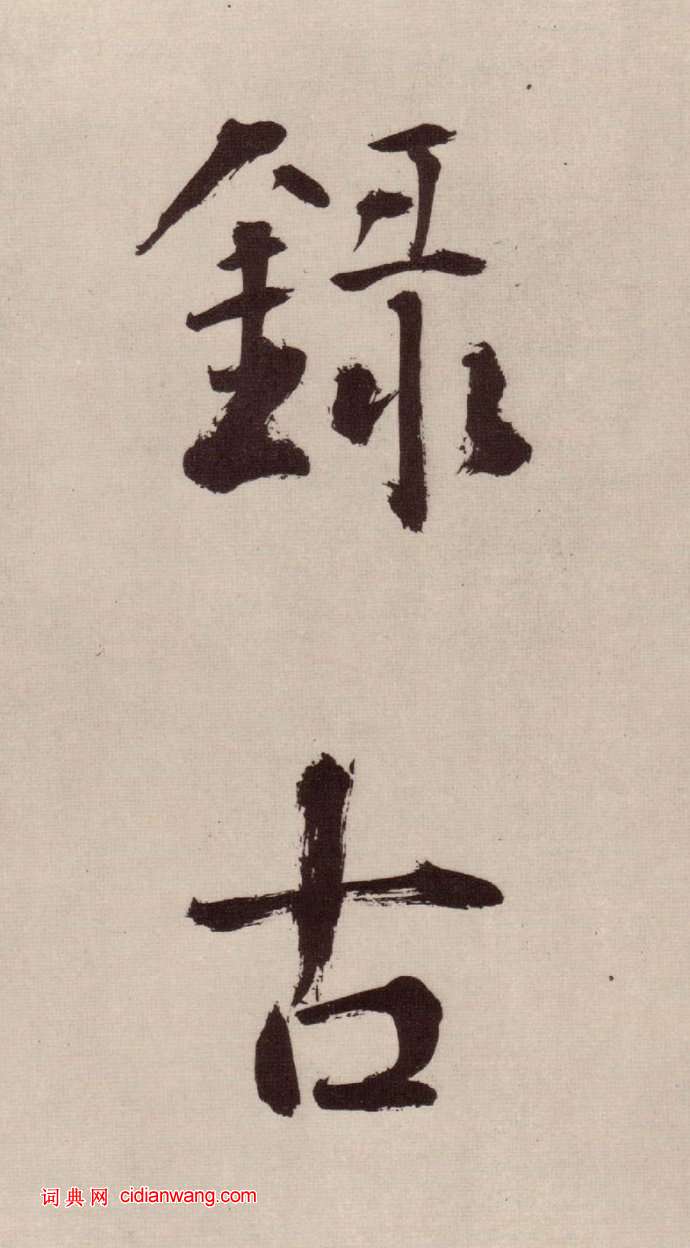 錄
古
词典网 cidianwang.com